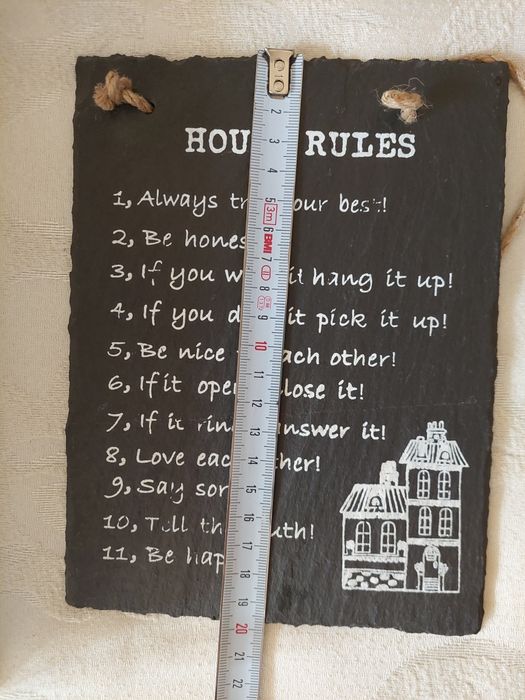 HOU RULES
1, Always tr our best!
2, Be hones
3, If you w it hang it up!
4, If you d it pick it up!
5, Be nice each other!
6, If it ope lose it!
7, If it rin answer it!
8, Love eac her!
9, Say sor
10, Tell th uth!
11, Be hap
2
3
4
5
3m
6
BMI
7
8
9
10
11
12
13
14
15
16
17
18
19
20
21
22